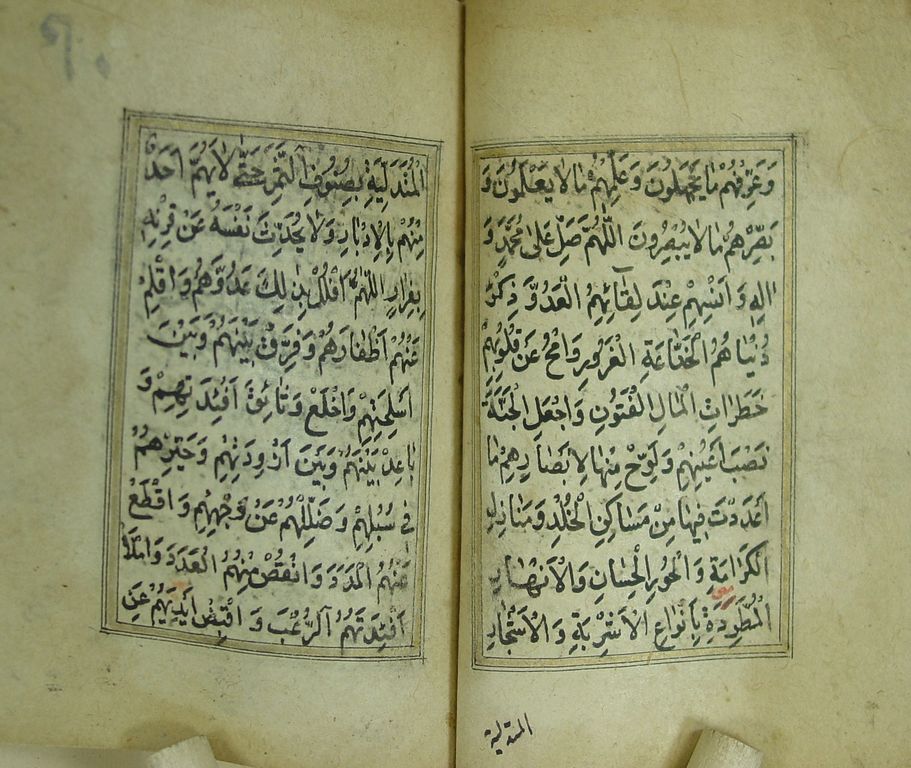 وَعَرِّفْهُمْ مَا يَجْهَلُونَ وَعَلِّمْهُمْ مَا لَا يَعْلَمُونَ وَ
بَصِّرْهُمْ مَا لَا يُبْصِرُونَ اللّٰهُمَّ صَلِّ عَلىٰ مُحَمَّدٍ وَ
اٰلِهِ وَ اَنْسِهِمْ عِنْدَ لِقَائِهِمُ الْعَدُوَّ ذِكْرَ
دُنْيَاهُمُ الْخَدَّاعَةِ الْغَرُورِ وَامْحُ عَنْ قُلُوبِهِمْ
خَطَرَاتِ الْمَالِ الْفَتُونِ وَاجْعَلِ الْجَنَّةَ
نَصْبَ اَعْيُنِهِمْ وَلَوِّحْ مِنْهَا لِاَبْصَارِهِمْ مَا
اَعْدَدْتَ فِيهَا مِنْ مَسَاكِنِ الْخُلْدِ وَمَنَازِلِ
الْكَرَامَةِ وَالْحُورِ الْحِسَانِ وَالْاَنْهَارِ
الْمُطَّرِدَةِ بِاَنْوَاعِ الْاَشْرِبَةِ وَالْاَشْجَارِ
المتدلية
الْمُتَدَلِّيَةِ بِصُنُوفِ الثَّمَرِ حَتّٰى لَا يَهُمَّ اَحَدٌ
مِنْهُمْ بِالْاِدْبَارِ وَلَا يُحَدِّثَ نَفْسَهُ عَنْ قِرْنِهِ
بِفِرَارٍ اللّٰهُمَّ افْلُلْ بِذٰلِكَ عَدُوَّهُمْ وَاقْلِمْ
عَنْهُمْ اَظْفَارَهُمْ وَفَرِّقْ بَيْنَهُمْ وَبَيْنَ
اَسْلِحَتِهِمْ وَاخْلَعْ وَثَائِقَ اَفْئِدَتِهِمْ وَ
بَاعِدْ بَيْنَهُمْ وَبَيْنَ اَزْوِدَتِهِمْ وَحَيِّرْهُمْ
فِي سُبُلِهِمْ وَضَلِّلْهُمْ عَنْ وَجْهِهِمْ وَاقْطَعْ
عَنْهُمُ الْمَدَدَ وَانْقُصْ مِنْهُمُ الْعَدَدَ وَامْلَأْ
اَفْئِدَتَهُمُ الرُّعْبَ وَ اقْبِضْ اَيْدِيَهُمْ عَنِ